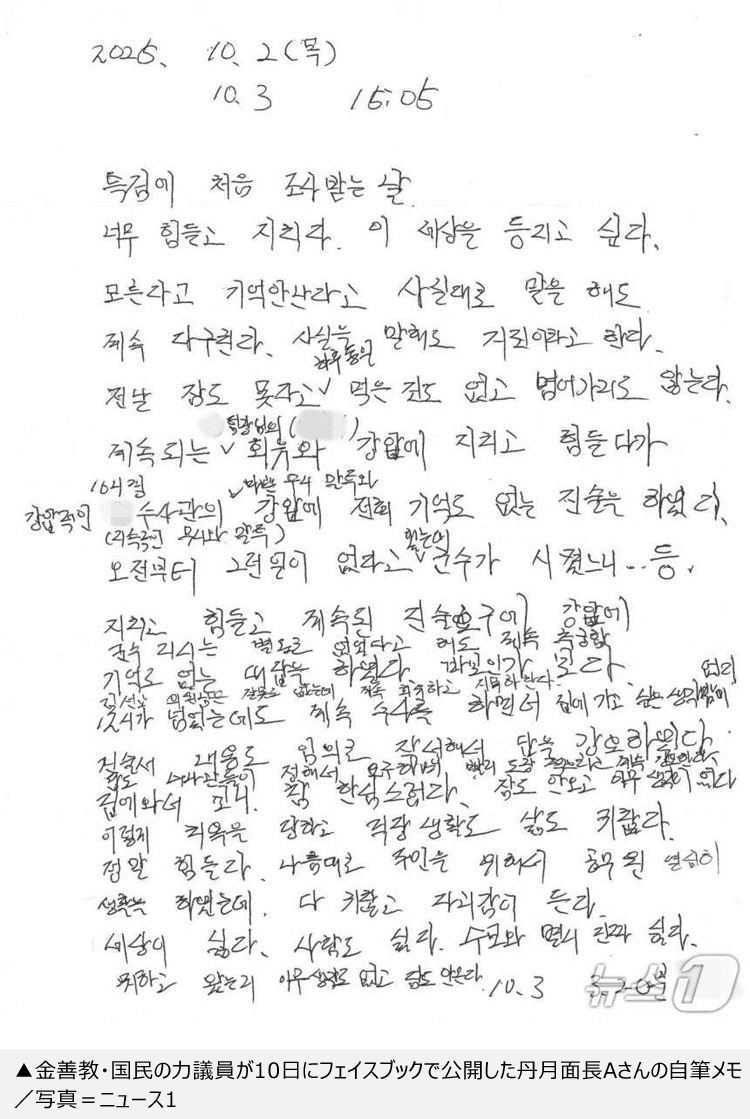 2025. 10. 2 (목)
10. 3 15:05
특검에 처음 조사받는 날
너무 힘들고 지치다. 이 세상을 등지고 싶다.
모른다고 기억안난다고 사실대로 말을 해도
계속 다구친다. 사실을 말해도 거짓이라고 한다.
하루종일
전날 잠도 못자고 ✓ 먹은 것도 없고 넘어가지도 않는다.
팀장님의 ( )
계속되는 ✓ 회유와 강압에 지치고 힘들다가
강압적인 수사관의 강압에 전혀 기억도 없는 진술을 하였다.
(계속적인 무시와 말투)
없는데
오전부터 그런 일이 없다고 ✓ 군수가 시켰느니... 등.
지치고 힘들고 계속된 진술요구에 강압에
군수 지시는 별도로 없었다고 해도 계속 추궁함
기억도 없는 대답을 하였다. 바보인가 보다.
김선교 의원님은 잘못도 없는데 계속 회유하고 지목하란다.
12시가 넘었는데도 계속 수사를 하면서 집에 가고 싶은 생각밖에 없다
진술서 내용도 임의로 작성해서 답을 강요하였다.
답도 수사관들이 정해서 요구하며 빨리 도장 찍으라고 계속 강요한다.
집에와서 보니. 참 한심스럽다. 잠도 안오고 아무 생각이 없다
이렇게 치욕을 당하고 직장생활도 삶도 귀찮다.
정말 힘들다. 나름대로 주민을 위해서 공무원 열심히
생활을 하였는데. 다 귀찮고 자괴감이 든다.
세상이 싫다. 사람도 싫다. 수모와 멸시 진짜 싫다.
뭐하고 왔는지 아무생각도 없고 잠도 안온다. 10. 3 3:20분
뉴스1
▲金善教・国民の力議員が10日にフェイスブックで公開した丹月面長Aさんの自筆メモ
／写真＝ニュース1